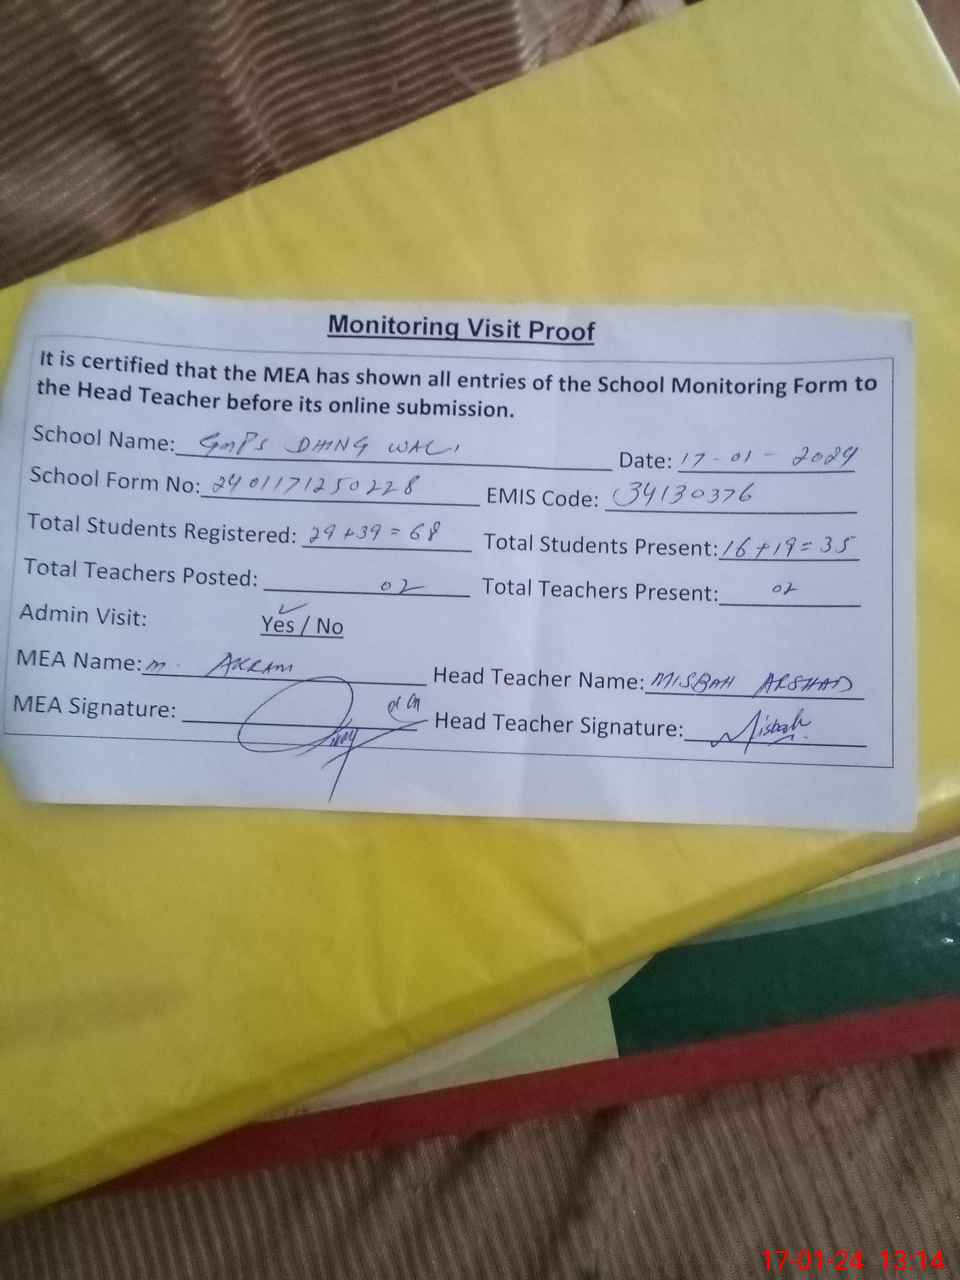 Monitoring Visit Proof
It is certified that the MEA has shown all entries of the School Monitoring Form to
the Head Teacher before its online submission.
School Name: GMPS DHING WALI Date: 17-01-2024
School Form No: 2401171250228 EMIS Code: 34130376
Total Students Registered: 29+39=68 Total Students Present: 16+19=35
Total Teachers Posted: 02 Total Teachers Present: 02
Admin Visit: Yes / No
MEA Name: M. AKRAM Head Teacher Name: MISBAH ARSHAD
MEA Signature: Head Teacher Signature: Misbah
17-01-24 13:14